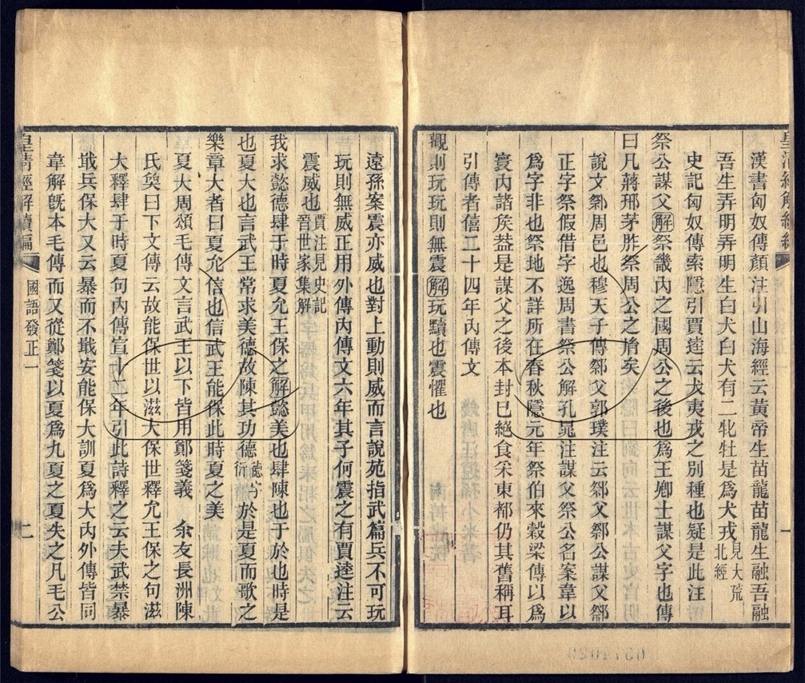 皇清經解續編
一
漢書匈奴傳顏注引山海經云黃帝生苗龍苗龍生融吾融
吾生弄明弄明生白犬白犬有二牝牡是爲犬戎見大荒北經
史記匈奴傳索隱引賈逵云犬夷戎之別種也疑是此汪
祭公謀父解祭畿內之國周公之後也爲王卿士謀父字也傳
曰凡蔣邢茅胙祭周公之胤矣
說文䣝周邑也穆天子傳䣝父郭璞注云䣝父䣝公謀父䣝
正字祭假借字逸周書祭公解孔晁注謀父祭公名案韋以
爲字非也祭地不詳所在春秋隱元年祭伯來穀梁傳以爲
寰內諸矦葢是謀父之後本封已絕食采東都仍其舊稱耳
引傳者僖二十四年內傳文
觀則玩玩則無震解玩黷也震懼也
遠孫案震亦威也對上動則威而言說苑指武篇兵不可玩
玩則無威正用外傳內傳文六年其子何震之有賈逵注云
震威也賈注見史記晉世家集解
我求懿德肆于時夏允王保之解懿美也肆陳也于於也時是
也夏大也言武王常求美德故陳其功德德字衍於是夏而歌之
樂章大者曰夏允信也信武王能保此時夏之美
夏大周頌毛傳文言武王以下皆用鄭箋義　余友長洲陳
氏奐曰下文傳云故能保世以滋大保世釋允王保之句滋
大釋肆于時夏句內傳宣十二年引此詩釋之云夫武禁暴
戢兵保大又云暴而不戢安能保大訓夏爲大內外傳皆同
韋解旣本毛傳而又從鄭箋以夏爲九夏之夏失之凡毛公
皇清經解續編
國語發正一
二